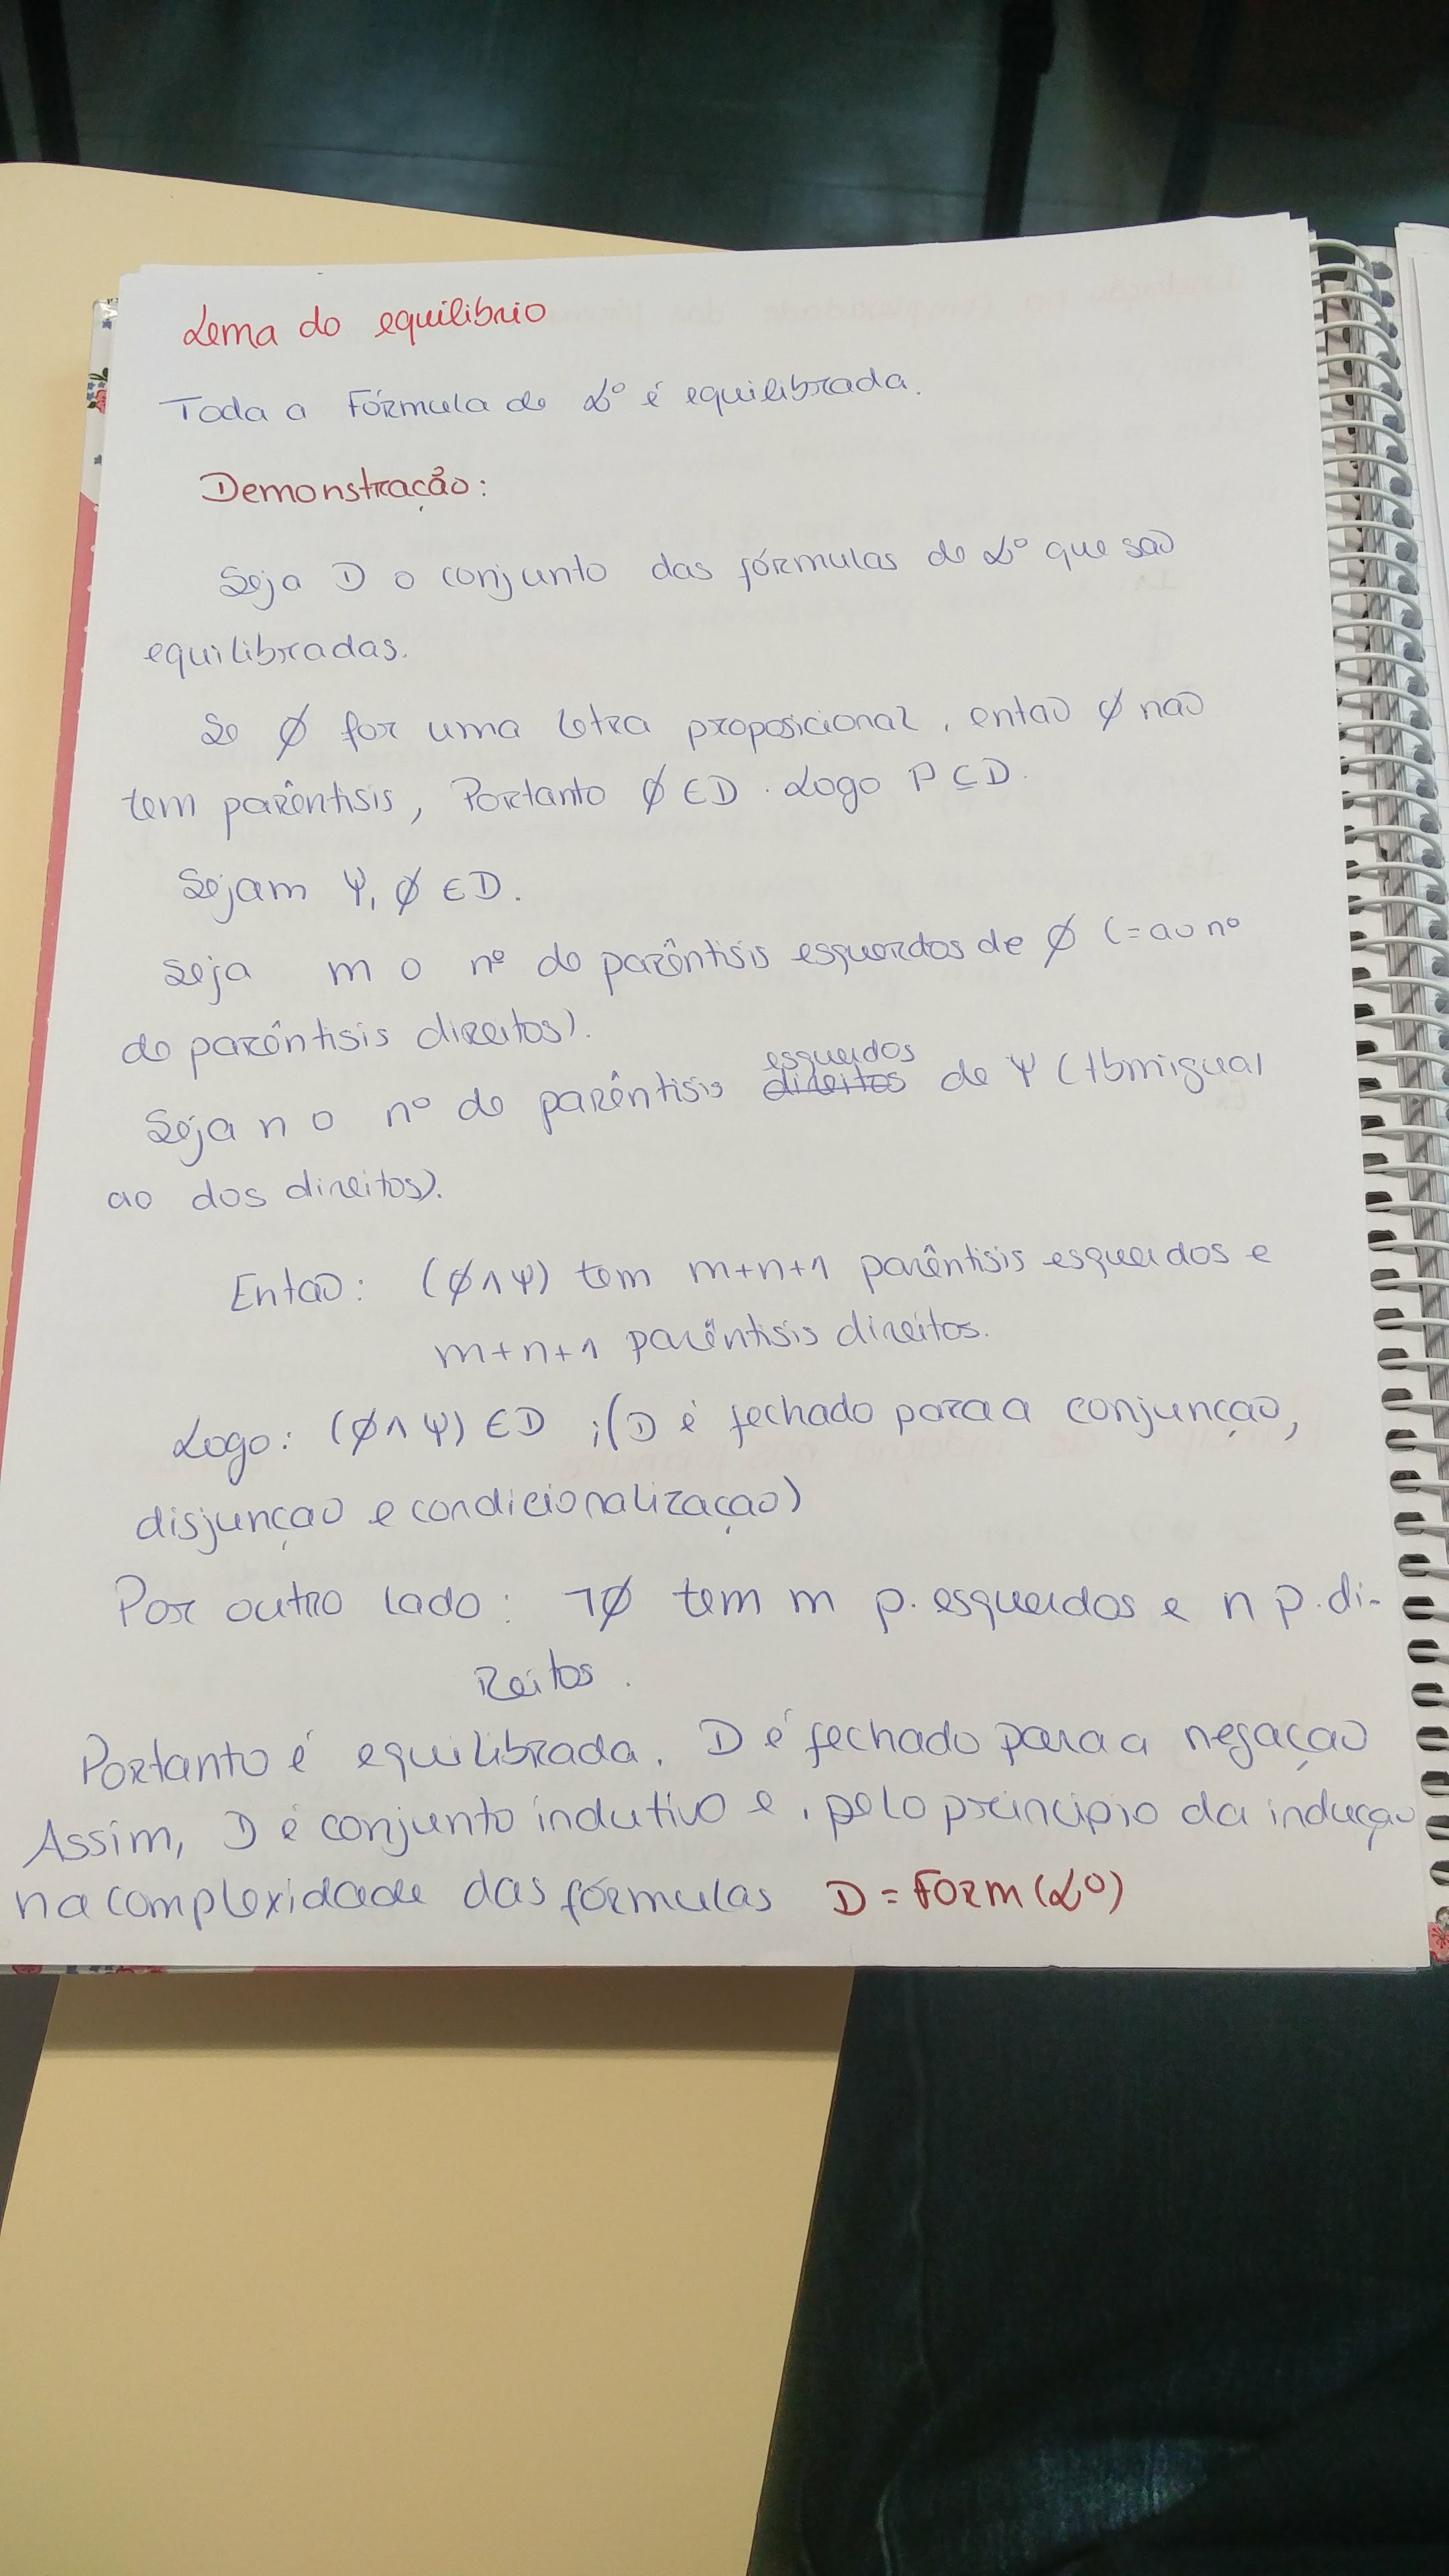 Lema do equilibrio
Toda a Fórmula de L° é equilibrada.
Demonstração:
Seja D o conjunto das fórmulas de L° que são
equilibradas.
Se ϕ for uma letra proposicional, então ϕ não
tem parêntisis, Portanto ϕ ∈ D. Logo P ⊆ D.
Sejam Ψ, ϕ ∈ D.
Seja m o nº de parêntisis esquerdos de ϕ (= ao nº
de parêntisis direitos).
esquerdos
Seja n o nº de parêntisis direitos de Ψ (tbm igual
ao dos direitos).
Então: (ϕ ∧ Ψ) tem m+n+1 parêntisis esquerdos e
m+n+1 parêntisis direitos.
Logo: (ϕ ∧ Ψ) ∈ D ; (D é fechado para a conjunção,
disjunção e condicionalização)
Por outro lado: ¬ϕ tem m p. esquerdos e n p. di-
reitos.
Portanto é equilibrada. D é fechado para a negação
Assim, D é conjunto indutivo e, pelo principio da indução
na complexidade das fórmulas D = Form(L°)